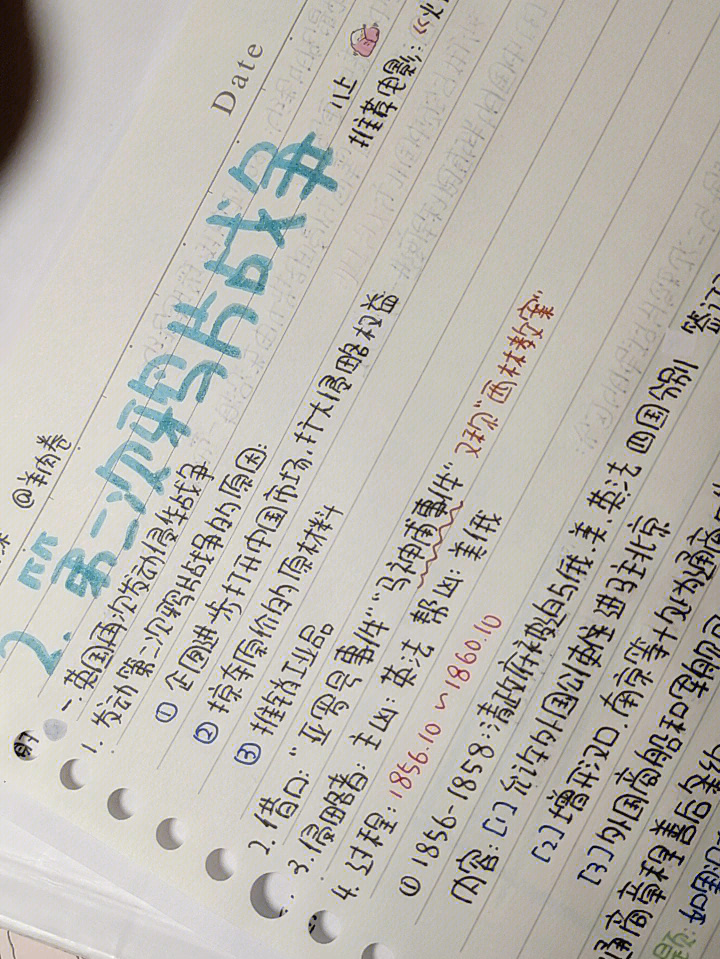 Date
八上
推荐电影:《火
@羊肉卷
2. 第二次鸦片战争
一. 英国再次发动侵华战争
1. 发动第二次鸦片战争的原因:
① 企图进一步打开中国市场,扩大侵略权益
② 掠夺原价的原材料
③ 推销工业品
2. 借口: "亚罗号事件" "马神甫事件" 又称"西林教案"
3. 侵略者: 主凶: 英法 帮凶: 美俄
4. 过程: 1856.10 ~1860.10
① 1856-1858: 清政府被迫与俄.美.英.法 四国分别 签订
内容: [1] 允许外国公使 进驻北京
[2] 增开汉口.南京等十处为通商
[3] 外国商船和军舰可
通商章程善后条约